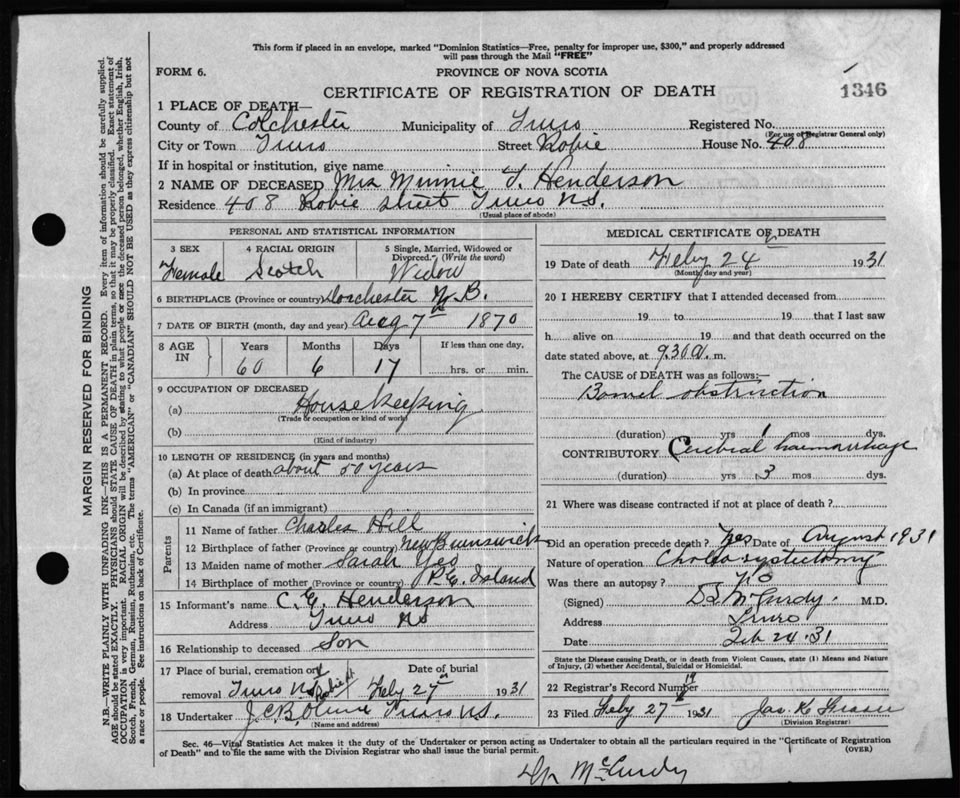 This form if placed in an envelope, marked "Dominion Statistics—Free, penalty for improper use, $300," and properly addressed
will pass through the Mail "FREE"
FORM 6.
PROVINCE OF NOVA SCOTIA
CERTIFICATE OF REGISTRATION OF DEATH
1346
1 PLACE OF DEATH—
County of Colchester Municipality of Truro Registered No.
(For use of Registrar General only)
City or Town Truro Street Robie House No. 408
If in hospital or institution, give name
2 NAME OF DECEASED Mrs Minnie Y. Henderson
Residence 408 Robie Street Truro N.S.
(Usual place of abode)
PERSONAL AND STATISTICAL INFORMATION
3 SEX 4 RACIAL ORIGIN 5 Single, Married, Widowed or Divorced. (Write the word)
Female Scotch Widow
6 BIRTHPLACE (Province or country) Dorchester N.B.
7 DATE OF BIRTH (month, day and year) Aug 7th 1870
8 AGE IN Years Months Days If less than one day.
60 6 17 hrs. or min.
9 OCCUPATION OF DECEASED
(a) Housekeeping
(Trade or occupation or kind of work)
(b)
(Kind of industry)
10 LENGTH OF RESIDENCE (in years and months)
(a) At place of death about 50 years
(b) In province
(c) In Canada (if an immigrant)
Parents
11 Name of father Charles Hill
12 Birthplace of father (Province or country) New Brunswick
13 Maiden name of mother Sarah Yeo
14 Birthplace of mother (Province or country) P.E. Island
15 Informant's name C. E. Henderson
Address Truro NS
16 Relationship to deceased Son
17 Place of burial, cremation or removal Truro N.S. Robie St Date of burial Feby 27th 1931
18 Undertaker J.C.B. Olive Truro N.S.
(Name and address)
MEDICAL CERTIFICATE OF DEATH
19 Date of death Feby 24 1931
(Month, day and year)
20 I HEREBY CERTIFY that I attended deceased from
19 to 19 that I last saw
h alive on 19 and that death occurred on the
date stated above, at 9.30 a. m.
The CAUSE OF DEATH was as follows:—
Bowel obstruction
(duration) yrs 1 mos dys.
CONTRIBUTORY Cerebral haemorrhage
(duration) yrs 3 mos dys.
21 Where was disease contracted if not at place of death?
Did an operation precede death? Yes Date of August 1931
Nature of operation Cholecystectomy
Was there an autopsy? No
(Signed) McCurdy. M.D.
Address Truro
Date Feb 24.31
State the Disease causing Death, or in death from Violent Causes, state (1) Means and Nature of Injury, (2) whether Accidental, Suicidal or Homicidal.
22 Registrar's Record Number 19
23 Filed Feby 27th 1931 Jas. K
(Division Registrar)
Sec. 46—Vital Statistics Act makes it the duty of the Undertaker or person acting as Undertaker to obtain all the particulars required in the "Certificate of Registration
of Death" and to file the same with the Division Registrar who shall issue the burial permit. (OVER)
Dr McCurdy
MARGIN RESERVED FOR BINDING
N.B.—WRITE PLAINLY WITH UNFADING INK—THIS IS A PERMANENT RECORD. Every item of information should be carefully supplied.
AGE should be stated EXACTLY. PHYSICIANS should STATE CAUSE OF DEATH in plain terms, so that it may be properly classified. Exact statement of
OCCUPATION is very important. RACIAL ORIGIN will be described by stating to what people or race the deceased person belonged, whether English, Irish,
Scotch, French, German, Russian, Ruthenian, etc. The terms "AMERICAN" or "CANADIAN" SHOULD NOT BE USED as they express citizenship but not
a race or people. See instructions on back of Certificate.